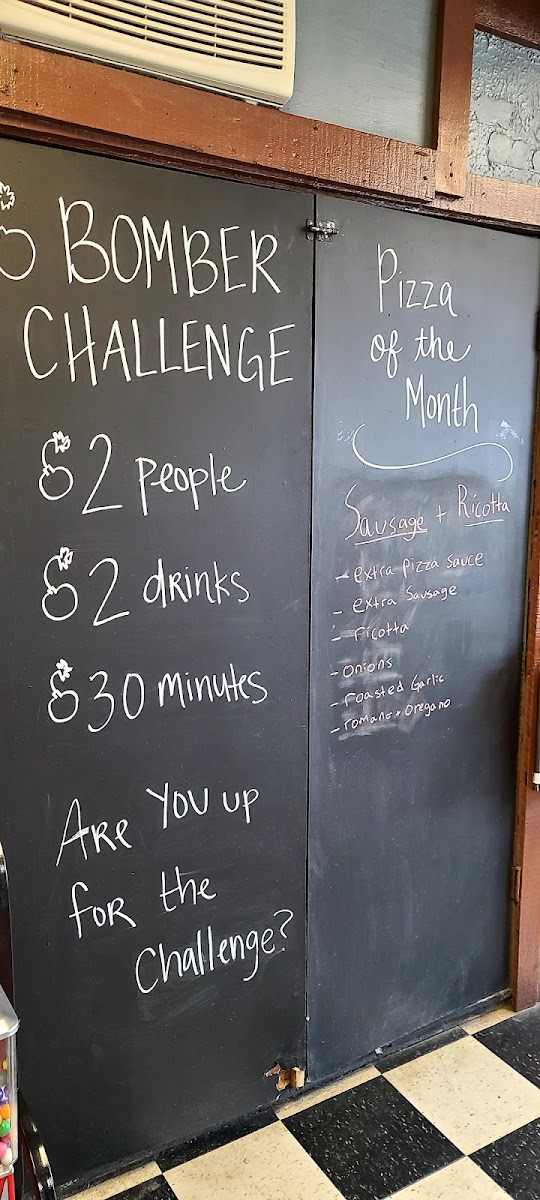 BOMBER
CHALLENGE
2 People
2 drinks
30 minutes
Are You up
for the
Challenge?
Pizza
of the
Month
Sausage + Ricotta
- extra pizza sauce
- extra Sausage
- ricotta
- onions
- roasted Garlic
- romano + oregano